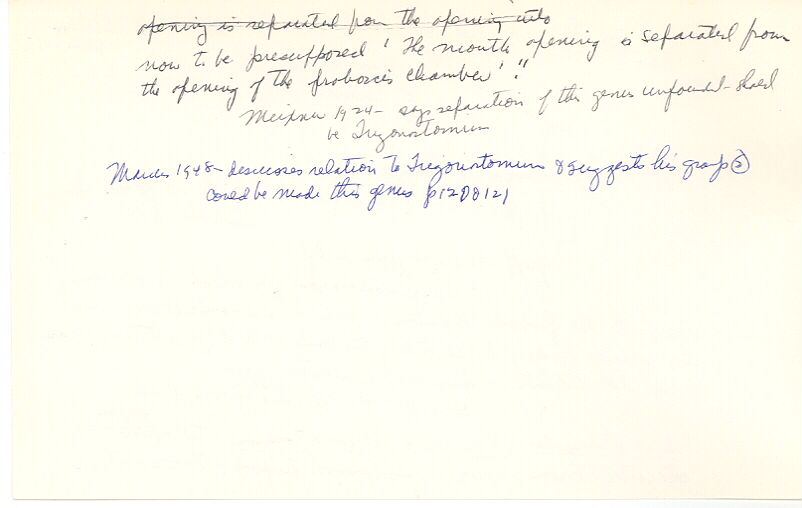 opening is separated from the opening into
now to be presupposed 'The mouth opening is separated from
the opening of the proboscis chamber'."
Meixner 1924 - says separation of this genus unfounded - should
be Trigonostomum
Marcus 1948 - discusses relation to Trigonostomum & suggests his group ②
could be made this genus p 120 & 121